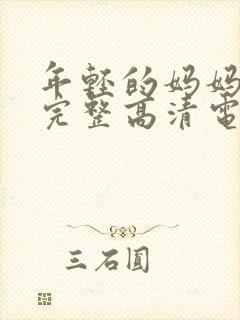 年轻的妈妈
完整高清电
三石圆